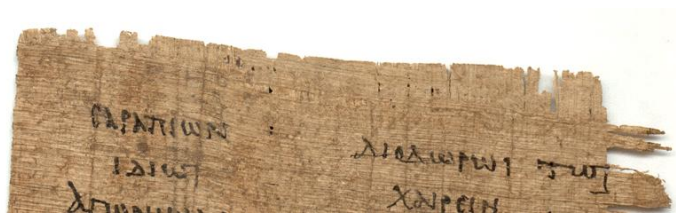 ϲαραπιων διοδωρωι τωι
ιδιωι χαιρειν